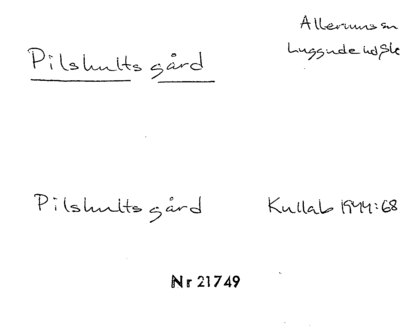 Allerums sn
Pilshults gård
Luggude hd Sk
Pilshults gård Kullab 1944:68
Nr 21749